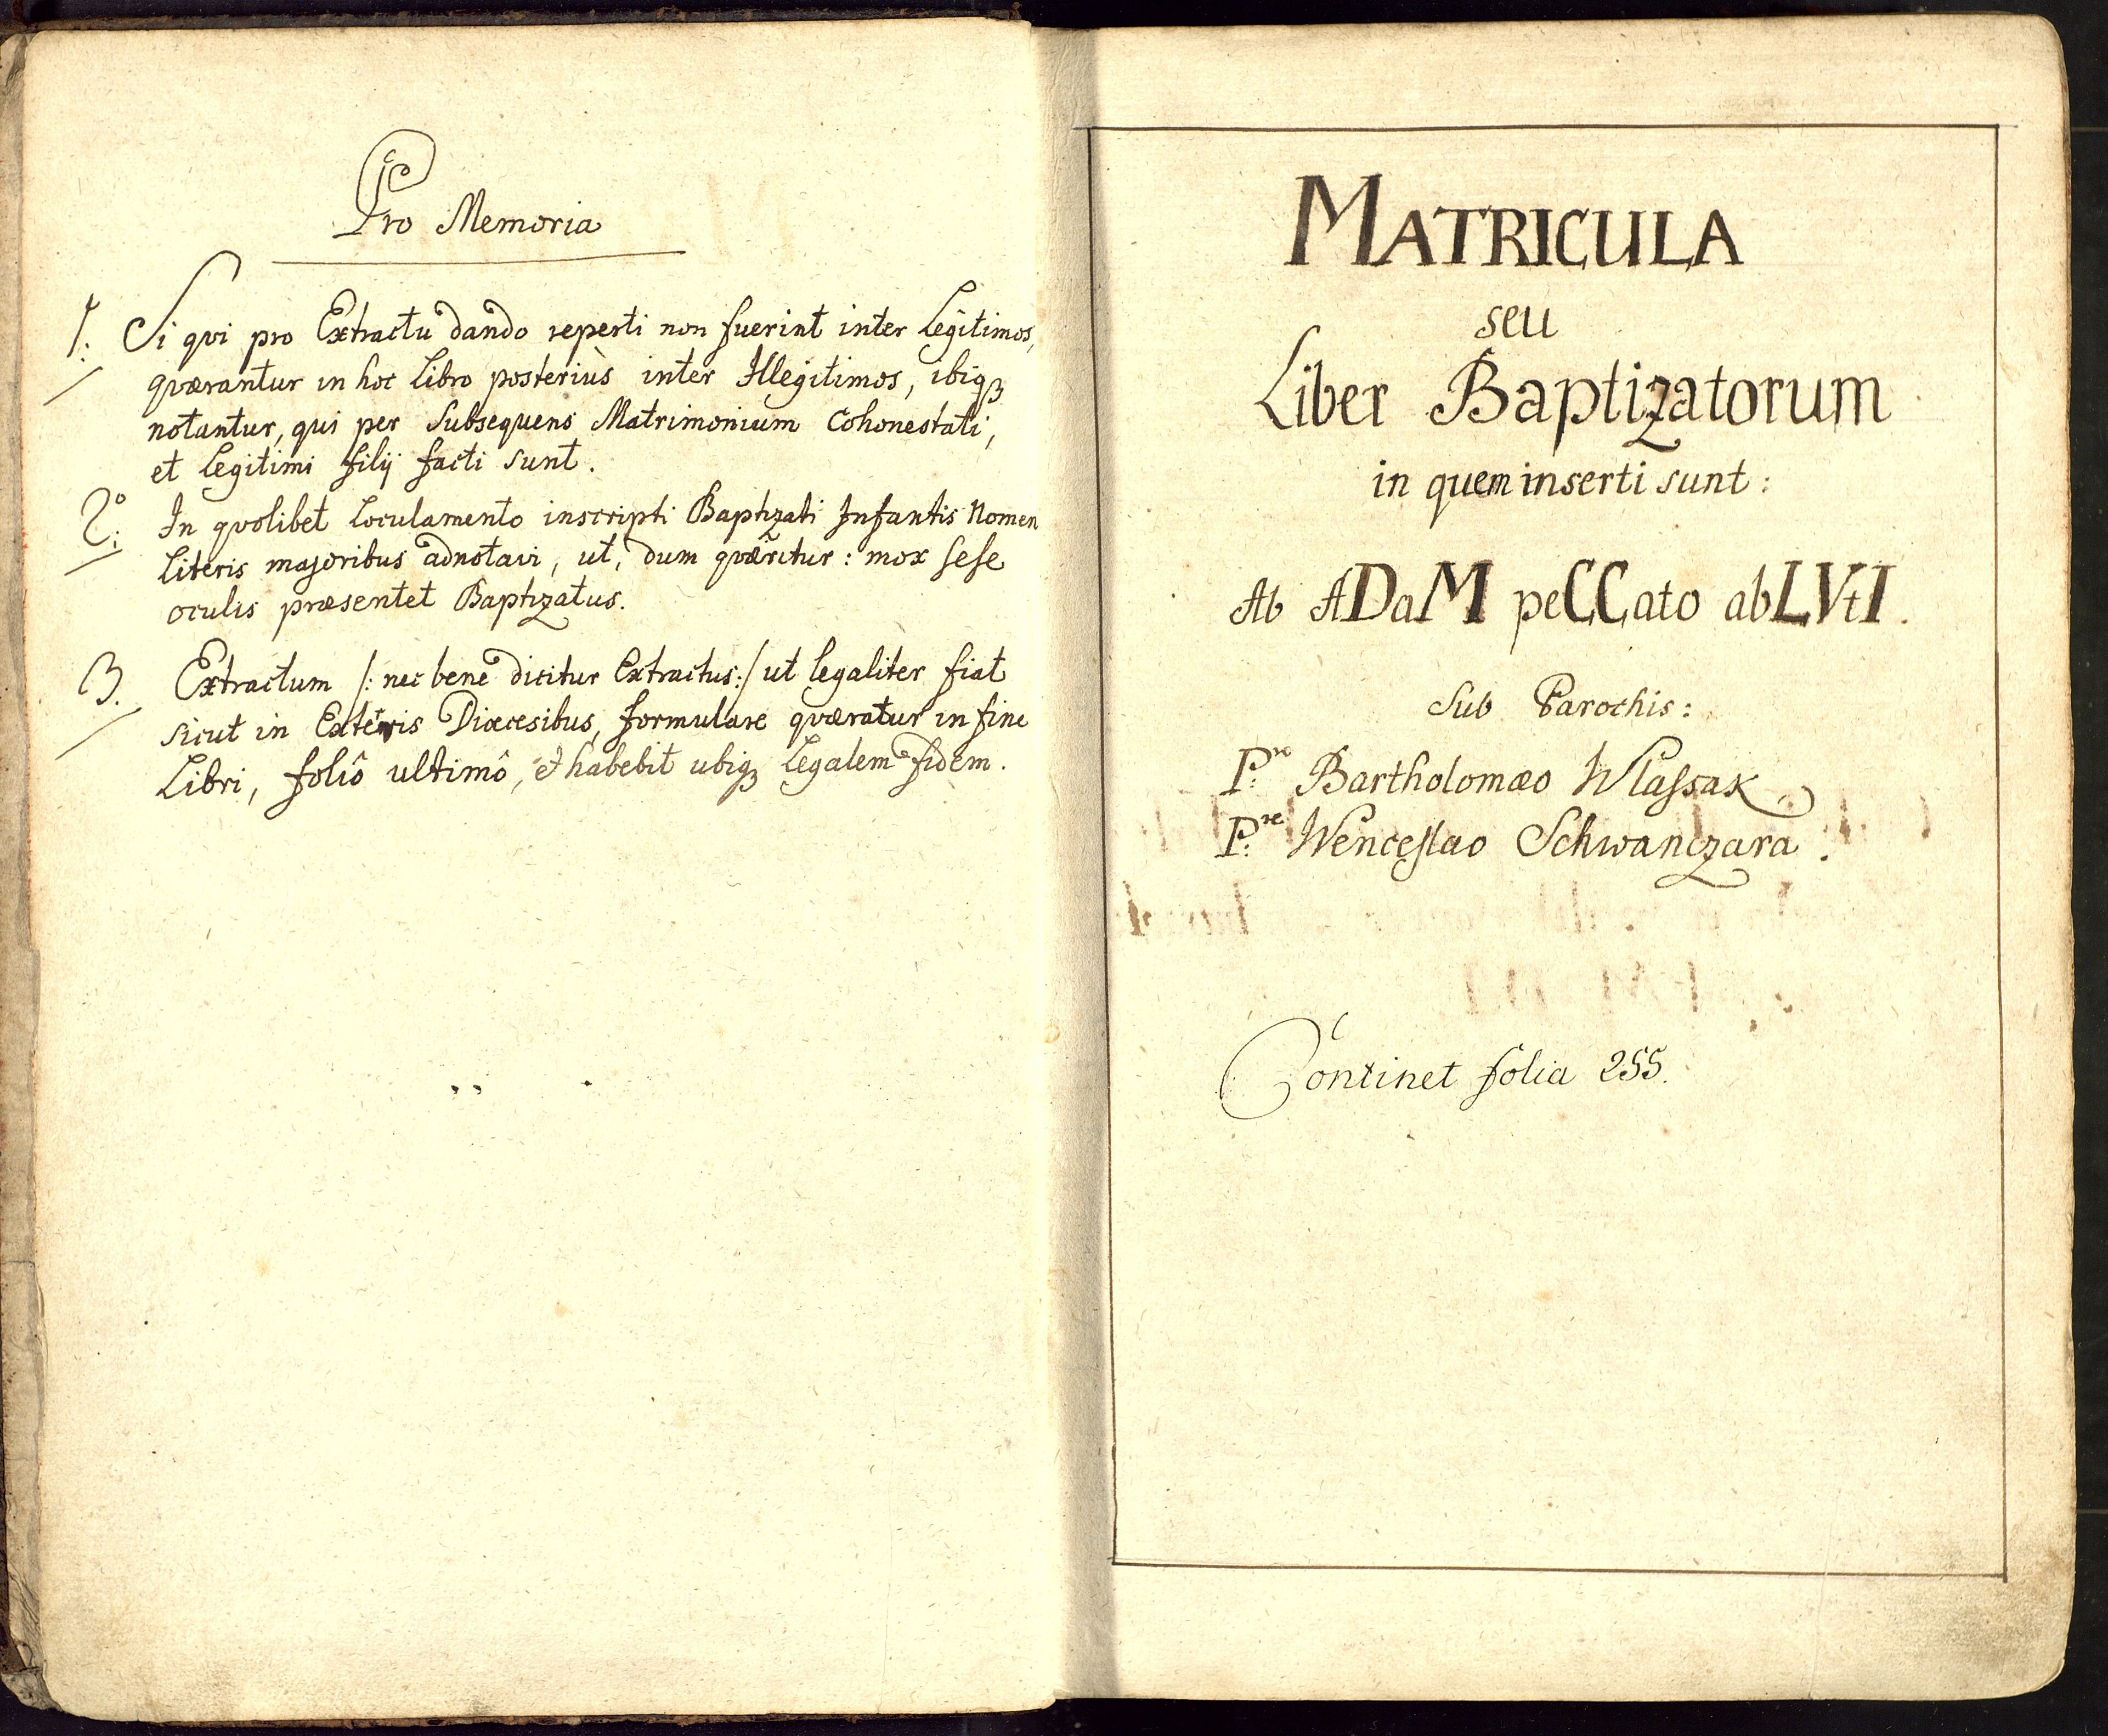 Pro Memoria
1. Si qvi pro Extractu dando reperti non fuerint inter Legitimos,
qværantur in hoc Libro posteriùs inter Illegitimos, ibiqꝫ
notantur, qui per Subsequens Matrimonium Cohonestati,
et Legitimi filij facti sunt.
2º. In qvolibet Loculamento inscripti Baptizati Infantis Nomen
Literis majoribus adnotavi, ut, dum qværitur: mox sese
oculis præsentet Baptizatus.
3. Extractum /: nec bene dicitur Extractus:/ ut legaliter fiat
sicut in Exteris Diœcesibus, formulare qværatur in fine
Libri, foliô ultimô, et habebit ubiqꝫ Legalem fidem.
MATRICULA
seu
Liber Baptizatorum
in quem inserti sunt:
Ab ADaM peCCato abLVtI.
Sub Parochis:
P:re Bartholomæo Wlassak
P:re Wenceslao Schwanczara.
Continet folia 255.